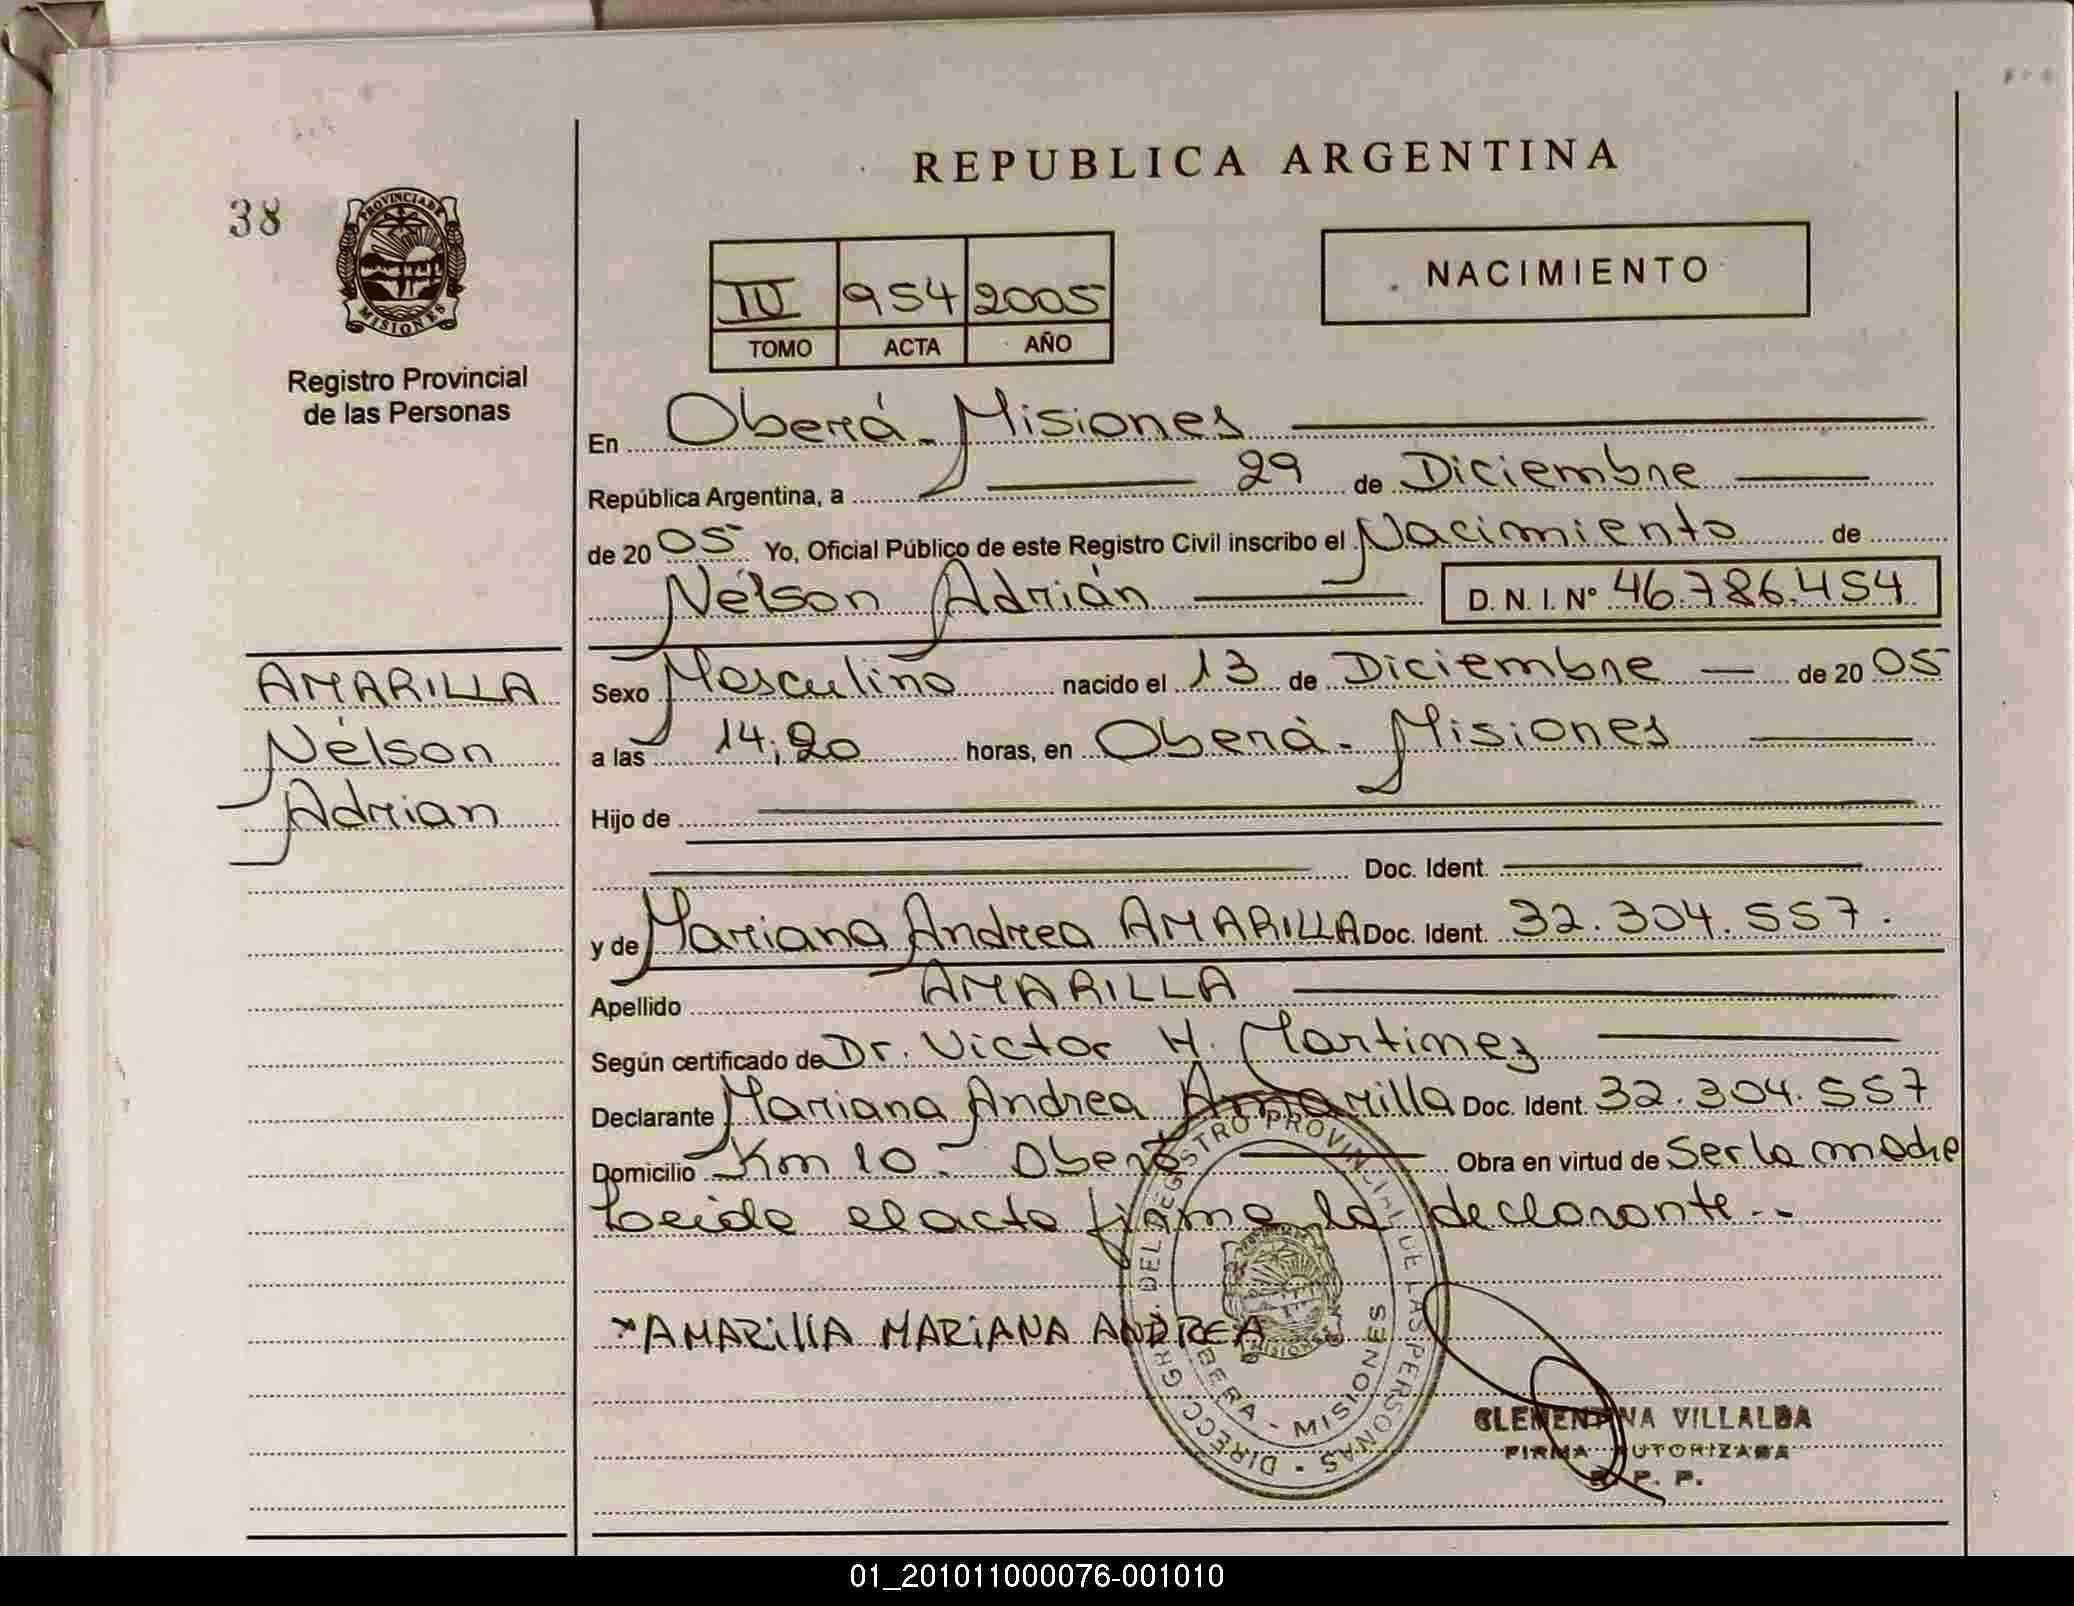 REPUBLICA ARGENTINA
38
PROVINCIA DE MISIONES
Registro Provincial
de las Personas
IV 954 2005
TOMO ACTA AÑO
NACIMIENTO
En Oberá - Misiones
República Argentina, a 29 de Diciembre
de 2005 Yo, Oficial Público de este Registro Civil inscribo el Nacimiento de
Nélson Adrián D. N. I. N° 46.786.454
AMARILLA
Nélson
Adrian
Sexo Masculino nacido el 13 de Diciembre de 2005
a las 14,20 horas, en Oberá - Misiones
Hijo de
Doc. Ident.
y de Mariana Andrea AMARILLA Doc. Ident. 32.304.557.
Apellido AMARILLA
Según certificado de Dr. Victor H. Martinez
Declarante Mariana Andrea Amarilla Doc. Ident. 32.304.557
Domicilio Km 10 - Oberá Obra en virtud de Ser la madre
Leida el acta firma la declarante --
AMARIllA MARIANA ANDREA
DIRECC. GRAL. DEL REGISTRO PROVINCIAL DE LAS PERSONAS
OBERA - MISIONES
MISIONES
CLEMENTINA VILLALBA
FIRMA AUTORIZADA
R. P. P.
01_201011000076-001010